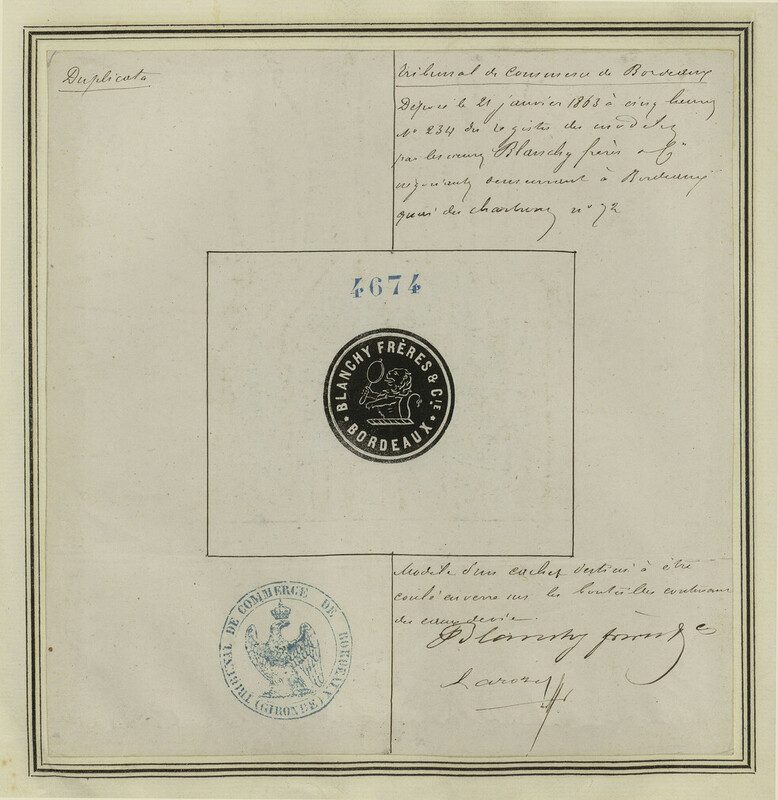 Duplicata
Tribunal de Commerce de Bordeaux
Déposé le 21 janvier 1863 à cinq heures
N° 234 du registre des modèles
par les sieurs Blanchy frères & Cie
négociants demeurant à Bordeaux
quai des chartrons n° 72
4674
BLANCHY FRÈRES & CIE.
• BORDEAUX •
Modèle d'un cachet destiné à être
coulé en verre sur les bouteilles contenant
des eaux de vie.
Blanchy frères & C
TRIBUNAL DE COMMERCE DE BORDEAUX
(GIRONDE)